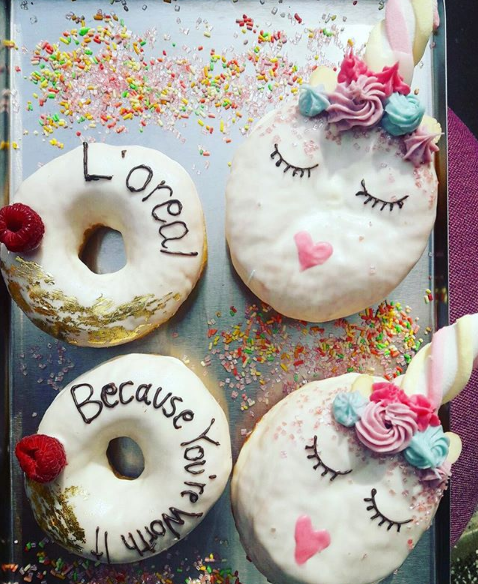 L'oreal
Because You're Worth It